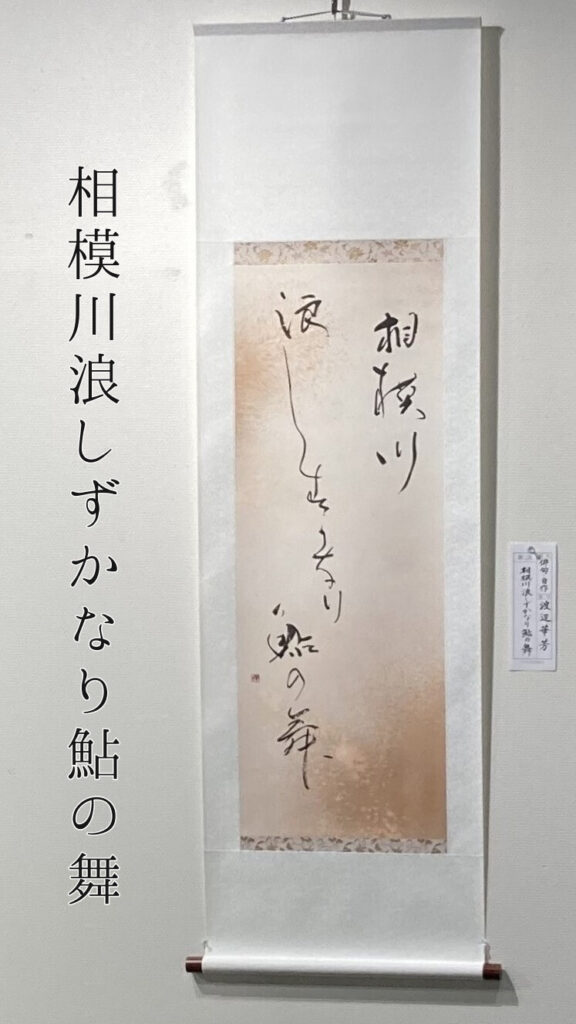 相模川
浪しずかなり
鮎の舞
俳句自作 渡辺華芳
相模川浪しずかなり鮎の舞
相模川浪しずかなり鮎の舞